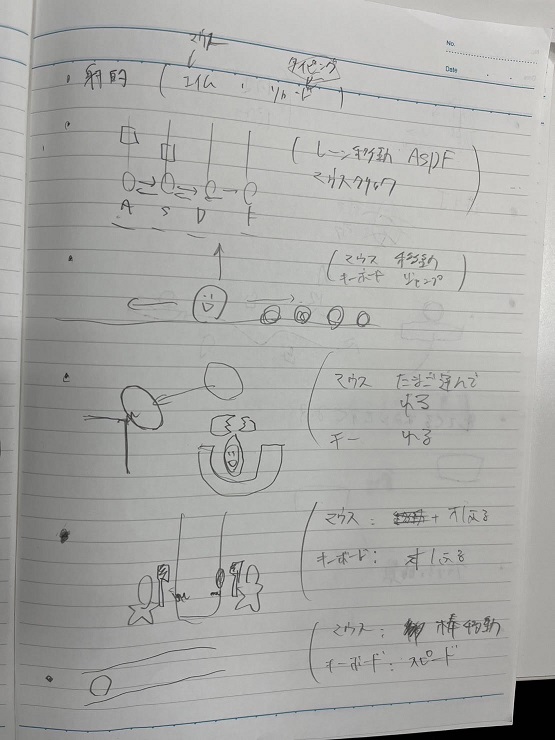 No.
Date
マウス
タイピング
・射的 ( エイム , リロード )
( レーン移動 ASDF
マウスクリック )
A S D F
( マウス 移動
キーボード ジャンプ )
( マウス たまご運んで
わる
キー わる
( マウス : + 打ち返る
キーボード :
( マウス : 棒移動
キーボード : スピード